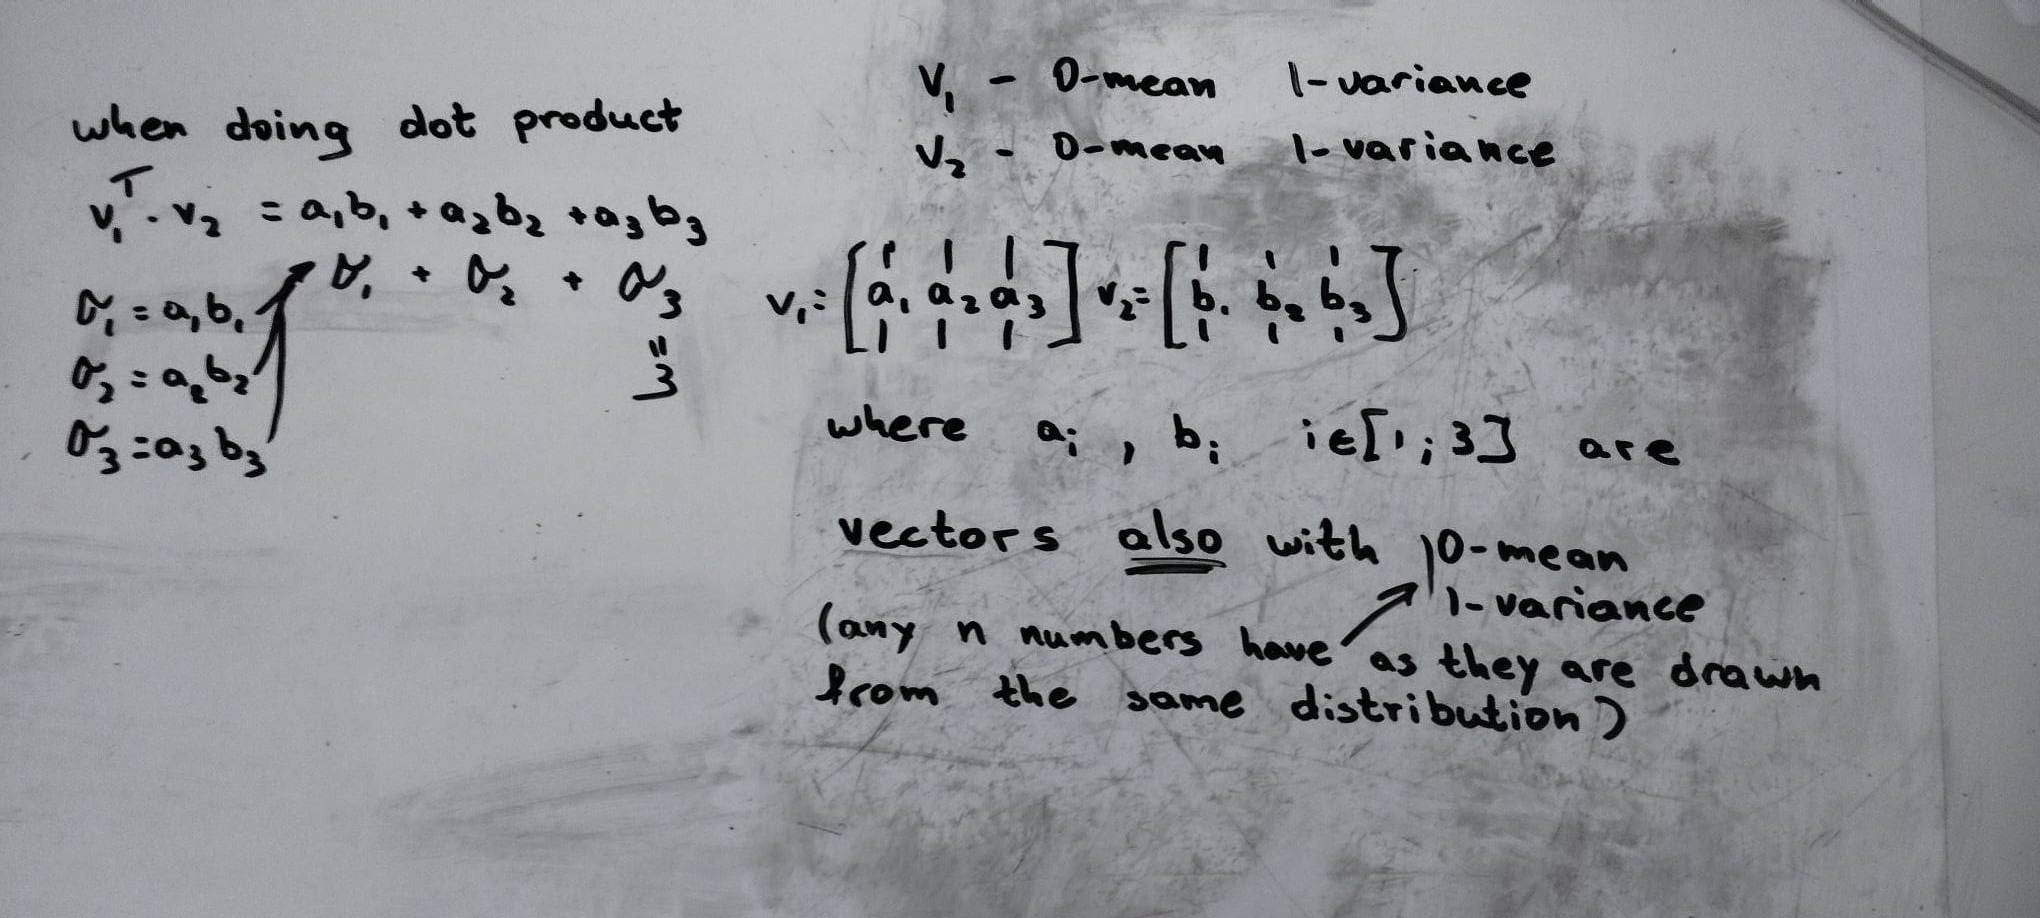 when doing dot product
v₁ᵀ · v₂ = a₁b₁ + a₂b₂ + a₃b₃
σ₁ + σ₂ + σ₃
σ₁ = a₁b₁
σ₂ = a₂b₂
σ₃ = a₃b₃
"
3
V₁ - 0-mean 1-variance
V₂ - 0-mean 1-variance
v₁ = [a₁ a₂ a₃] v₂ = [b₁ b₂ b₃]
where aᵢ , bᵢ i∈[1;3] are
vectors also with 0-mean
1-variance
(any n numbers have as they are drawn
from the same distribution)